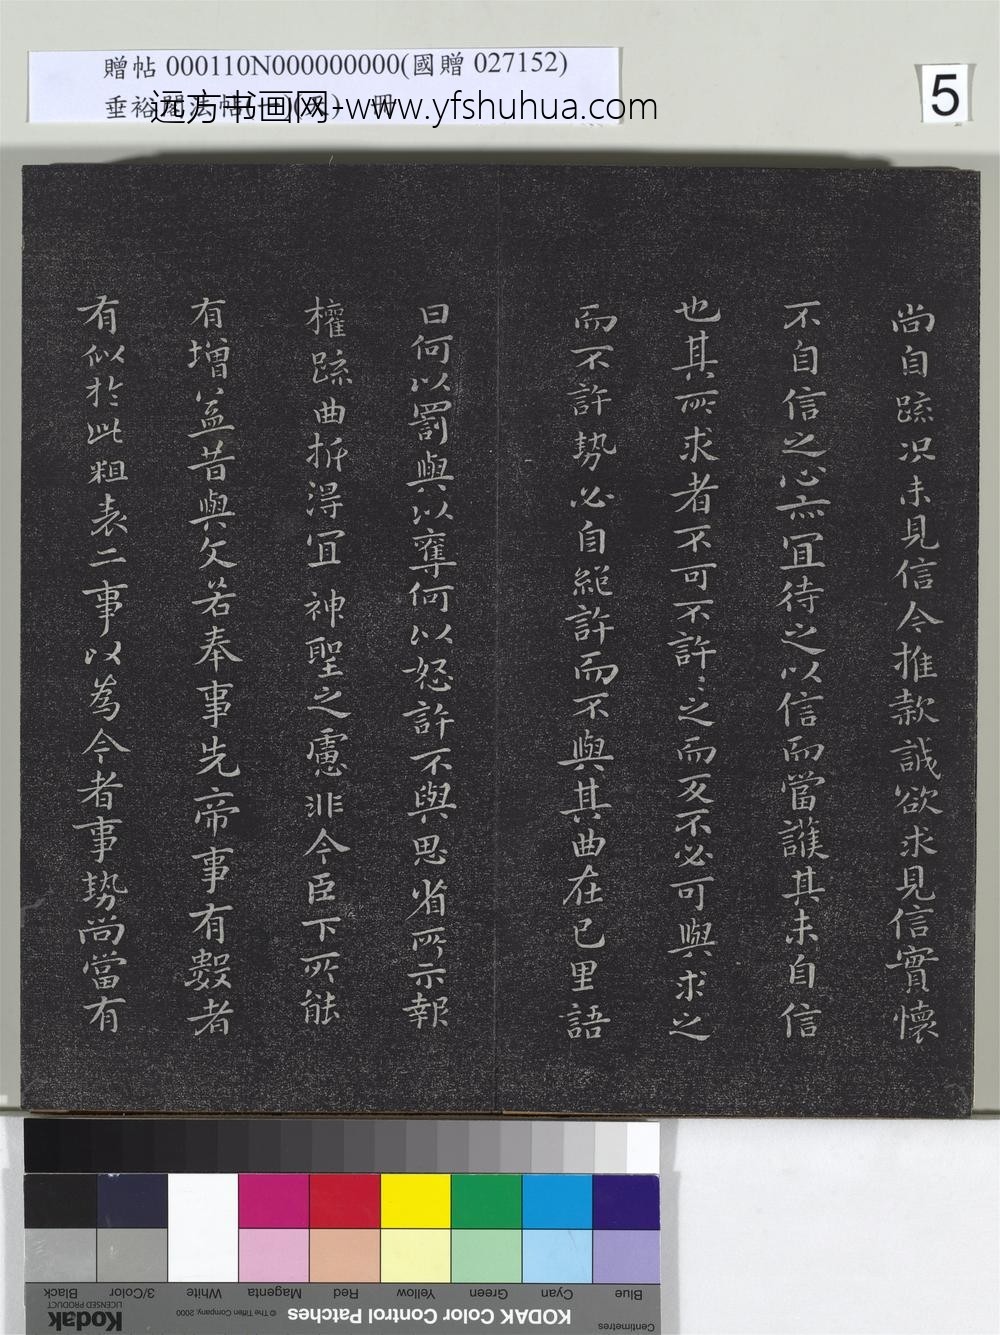 贈帖 000110N000000000(國贈 027152)
垂裕閣法帖
远方书画网-www.yfshuhua.com
冊
5
尚自疏况未見信今推款誠欲求見信實懷
不自信之心亦冝待之以信而當護其未自信
也其所求者不可不許許之而反不必可與求之
而不許勢必自絕許而不與其曲在己里語
曰何以罰與以奪何以怒許不與思省所示報
權疏曲折得冝神聖之慮非今臣下所能
有增益昔與文若奉事先帝事有數者
有似於此粗表二事以為今者事勢尚當有
Blue
Cyan
Green
Yellow
Red
Magenta
White
3/Color
Black
KODAK Color Control Patches
© The Tiffen Company, 2000
Kodak
LICENSED PRODUCT
Centimetres